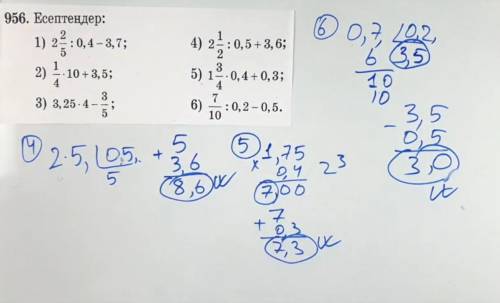 956. Есептеңдер:
1) 2 2/5 : 0,4 – 3,7;
2) 1/4 · 10 + 3,5;
3) 3,25 · 4 – 3/5;
4) 2 1/2 : 0,5 + 3,6;
5) 1 3/4 · 0,4 + 0,3;
6) 7/10 : 0,2 – 0,5.
6
0,7, 0,2,
6 3,5
10
10
- 3,5
0,5
3,0
4
2.5, 0,5,
5
+ 5
3,6
8,6
5
× 1,75
0,4
7,00
2 3
+ 7
0,3
7,3